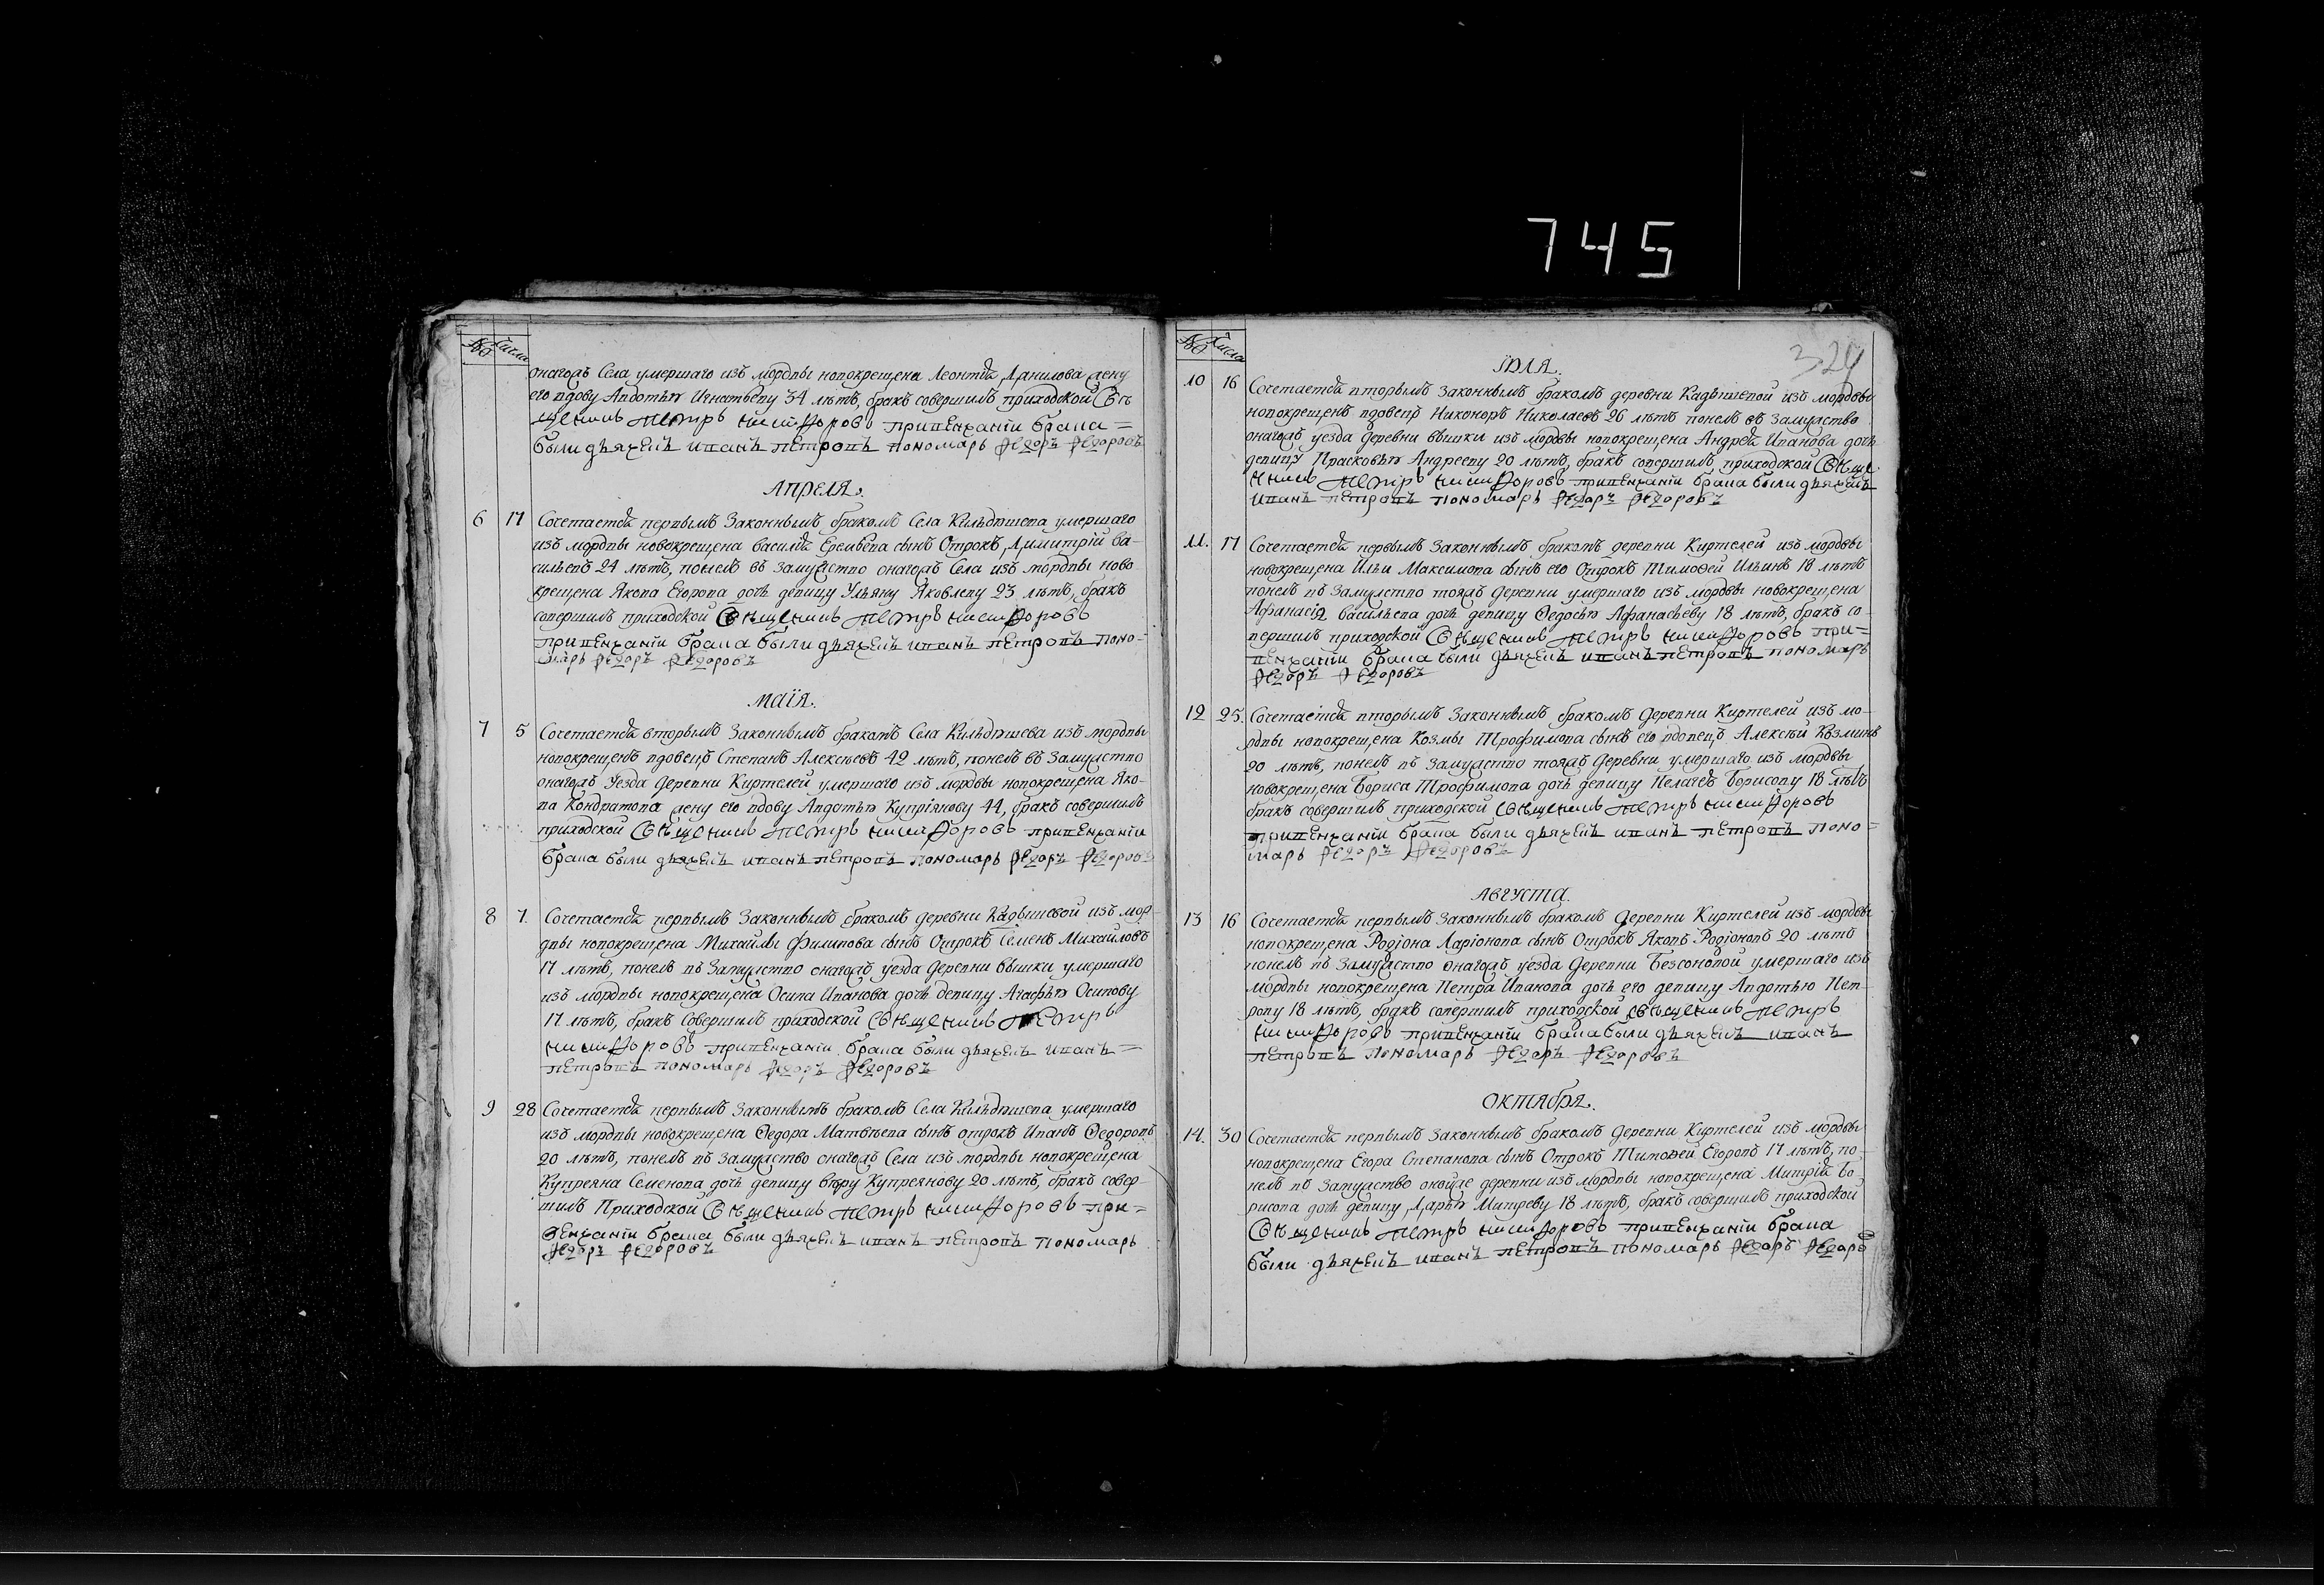 745
№ Числа
онагожъ Села умершаго изъ мордвы новокрещена Леонтья Данилова жену
его вдову Авдотью Игнатьеву 34 лѣтъ, бракъ совершилъ приходской Свя
щенникъ Петръ Никифоровъ при венчаніи брака =
были дьячекъ иванъ петровъ пономарь федоръ федоровъ
АПРЕЛЯ.
6 17 Сочетается первымъ Законнымъ бракомъ Села Кильдюшева умершаго
изъ мордвы новокрещена василья Еремѣева сынъ Отрокъ Димитрій ва-
сильевъ 24 лѣтъ, понелъ въ замужство онагожъ Села изъ мордвы ново
крещена Якова Егорова дочь девицу Ульяну Яковлеву 23 лѣтъ, бракъ
совершилъ приходской Священникъ Петръ Никифоровъ
при венчаніи брака были дьячекъ иванъ петровъ поно-
марь федоръ федоровъ
МАІЯ.
7 5 Сочетается вторымъ Законнымъ бракомъ Села Кильдюшева изъ мордвы
новокрещенъ вдовецъ Степанъ Алексѣевъ 42 лѣтъ, понелъ въ замужство
онагожъ уезда деревни Киртелей умершаго изъ мордвы новокрещена Яко-
ва Кондратова жену его вдову Авдотью Купріянову 44, бракъ совершилъ
приходской Священникъ Петръ Никифоровъ при венчаніи
брака были дьячекъ иванъ петровъ пономарь федоръ федоровъ
8 7. Сочетается первымъ Законнымъ бракомъ деревни Кадышевой изъ мор-
двы новокрещена Михайлы Филипова сынъ Отрокъ Семенъ Михайловъ
17 лѣтъ, понелъ въ Замужство онагожъ уезда деревни вышки умершаго
изъ мордвы новокрещена Осипа Иванова дочь девицу Агафью Осипову
17 лѣтъ, бракъ Совершилъ приходской Священникъ Петръ
Никифоровъ при венчаніи брака были дьячекъ иванъ =
петровъ пономарь федоръ федоровъ
9 28 Сочетается первымъ Законнымъ бракомъ Села Кильдюшева умершаго
изъ мордвы новокрещена Ѳедора Матвѣева сынъ отрокъ Иванъ Ѳедоровъ
20 лѣтъ, понелъ въ замужство онагожъ Села изъ мордвы новокрещена
Купреяна Семенова дочь девицу вѣру Купреянову 20 лѣтъ, бракъ совер-
шилъ Приходской Священникъ Петръ Никифоровъ при =
венчаніи брака были дьячекъ иванъ петровъ пономарь
федоръ федоровъ
№ Числа
329
ІЮЛЯ.
10 16 Сочетается вторымъ Законнымъ бракомъ деревни Кадышевой изъ мордвы
новокрещенъ вдовецъ Никоноръ Николаевъ 26 лѣтъ понелъ въ замужство
онагожъ уезда деревни вышки изъ мордвы новокрещена Андрея Иванова дочь
девицу Прасковью Андрееву 20 лѣтъ, бракъ совершилъ приходской Священ
никъ Петръ Никифоровъ при венчаніи брака были дьячекъ
иванъ петровъ пономарь федоръ федоровъ
11. 17 Сочетается первымъ Законнымъ бракомъ деревни Киртелей изъ мордвы
новокрещена Ильи Максимова сынъ его Отрокъ Тимоѳей Ильинъ 18 лѣтъ
понелъ въ Замужство тояжъ деревни умершаго изъ мордвы новокрещена
Афанасія васильева дочь девицу Ѳедосью Афанасьеву 18 лѣтъ, бракъ со-
вершилъ приходской Священникъ Петръ Никифоровъ при =
венчаніи брака были дьячекъ иванъ петровъ пономарь
федоръ федоровъ
12 25. Сочетается вторымъ Законнымъ бракомъ деревни Киртелей изъ мо-
рдвы новокрещена Козмы Трофимова сынъ его вдовецъ Алексѣй Козминъ
20 лѣтъ, понелъ въ замужство тояжъ деревни умершаго изъ мордвы
новокрещена Бориса Трофимова дочь девицу Пелагею Борисову 18 лѣтъ
бракъ совершилъ приходской Священникъ Петръ Никифоровъ
при венчаніи брака были дьячекъ иванъ петровъ поно =
марь федоръ федоровъ
АВГУСТА.
13 16 Сочетается первымъ Законнымъ бракомъ деревни Киртелей изъ мордвы
новокрещена Родіона Ларіонова сынъ Отрокъ Яковъ Родіоновъ 20 лѣтъ
понелъ въ Замужство онагожъ уезда деревни Безсоновой умершаго изъ
мордвы новокрещена Петра Иванова дочь его девицу Авдотью Пет-
рову 18 лѣтъ, бракъ совершилъ приходской Священникъ Петръ
Никифоровъ при венчаніи брака были дьячекъ иванъ
петровъ пономарь федоръ федоровъ
ОКТЯБРЯ.
14. 30 Сочетается первымъ Законнымъ бракомъ деревни Киртелей изъ мордвы
новокрещена Егора Степанова сынъ Отрокъ Тимоѳей Егоровъ 17 лѣтъ, по-
нелъ въ Замужство оной же деревни изъ мордвы новокрещена Митрія Бо-
рисова дочь девицу Дарью Митреву 18 лѣтъ, бракъ совершилъ приходской
Священникъ Петръ Никифоровъ при венчаніи брака
были дьячекъ иванъ петровъ пономарь федоръ федоровъ